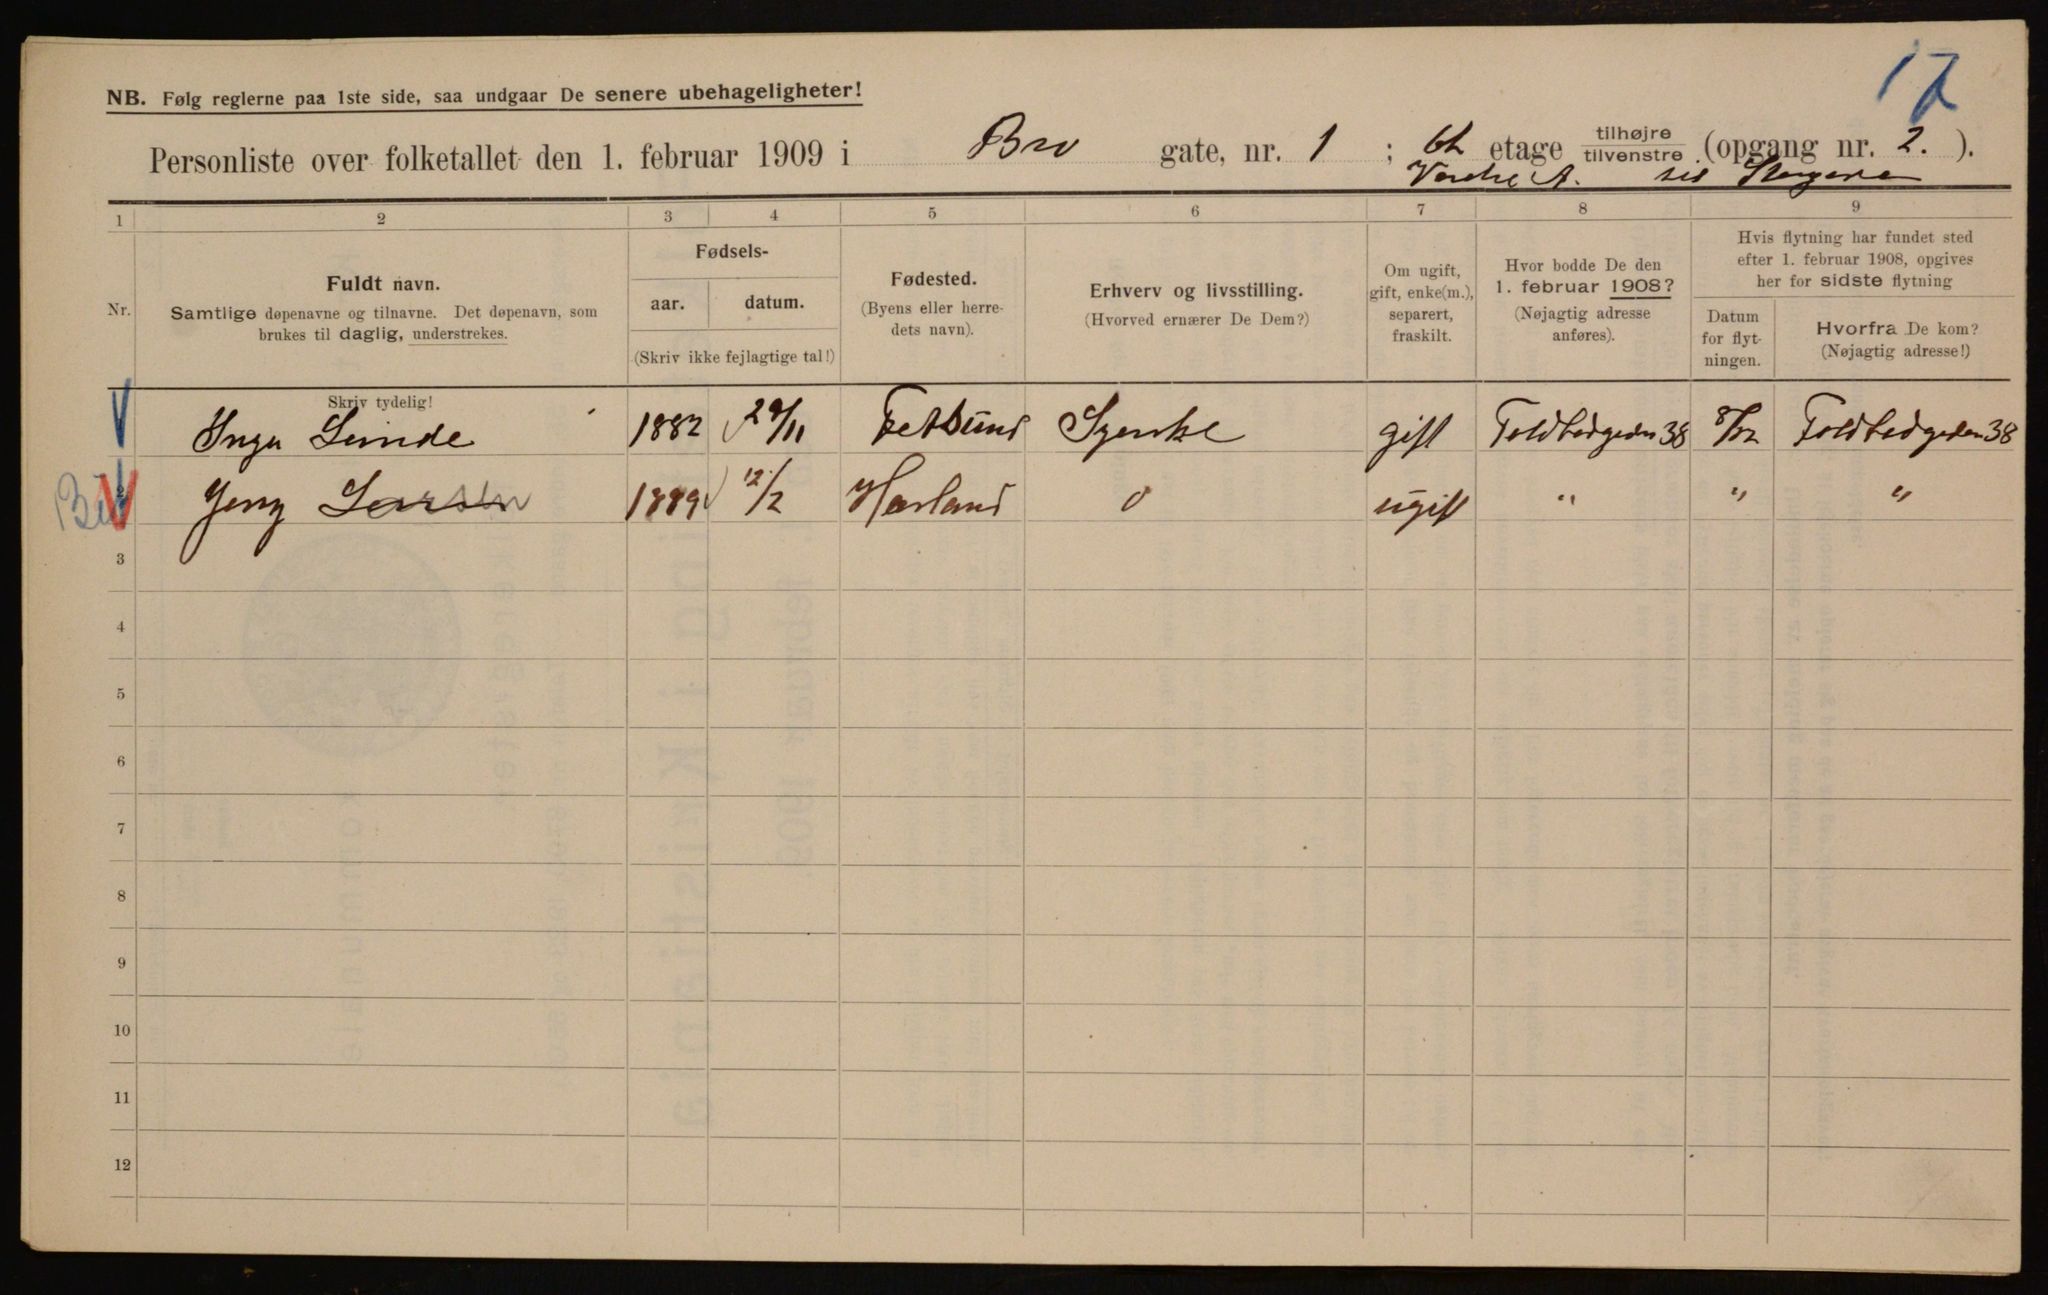 17
NB. Følg reglerne paa 1ste side, saa undgaar De senere ubehageligheter!
Personliste over folketallet den 1. februar 1909 i Bro gate, nr. 1 ; etage tilhøjre tilvenstre (opgang nr. 2. ).
1 2 3 4 5 6 7 8 9
Nr.
Fuldt navn.
Samtlige døpenavne og tilnavne. Det døpenavn, som
brukes til daglig, understrekes.
Skriv tydelig!
Fødsels-
aar. datum.
(Skriv ikke fejlagtige tal!)
Fødested.
(Byens eller herre-
dets navn).
Erhverv og livsstilling.
(Hvorved ernærer De Dem?)
Om ugift,
gift, enke(m.),
separert,
fraskilt.
Hvor bodde De den
1. februar 1908?
(Nøjagtig adresse
anføres).
Hvis flytning har fundet sted
efter 1. februar 1908, opgives
her for sidste flytning
Datum
for flyt-
ningen.
Hvorfra De kom?
(Nøjagtig adresse!)
Linde 1882 29/11 Fetsund gift Toldbodgeden 38 Toldbodgeden 38
2 Jeny Larsen 1889 12/2 Hørland 0 ugift " " "
3
4
5
6
7
8
9
10
11
12